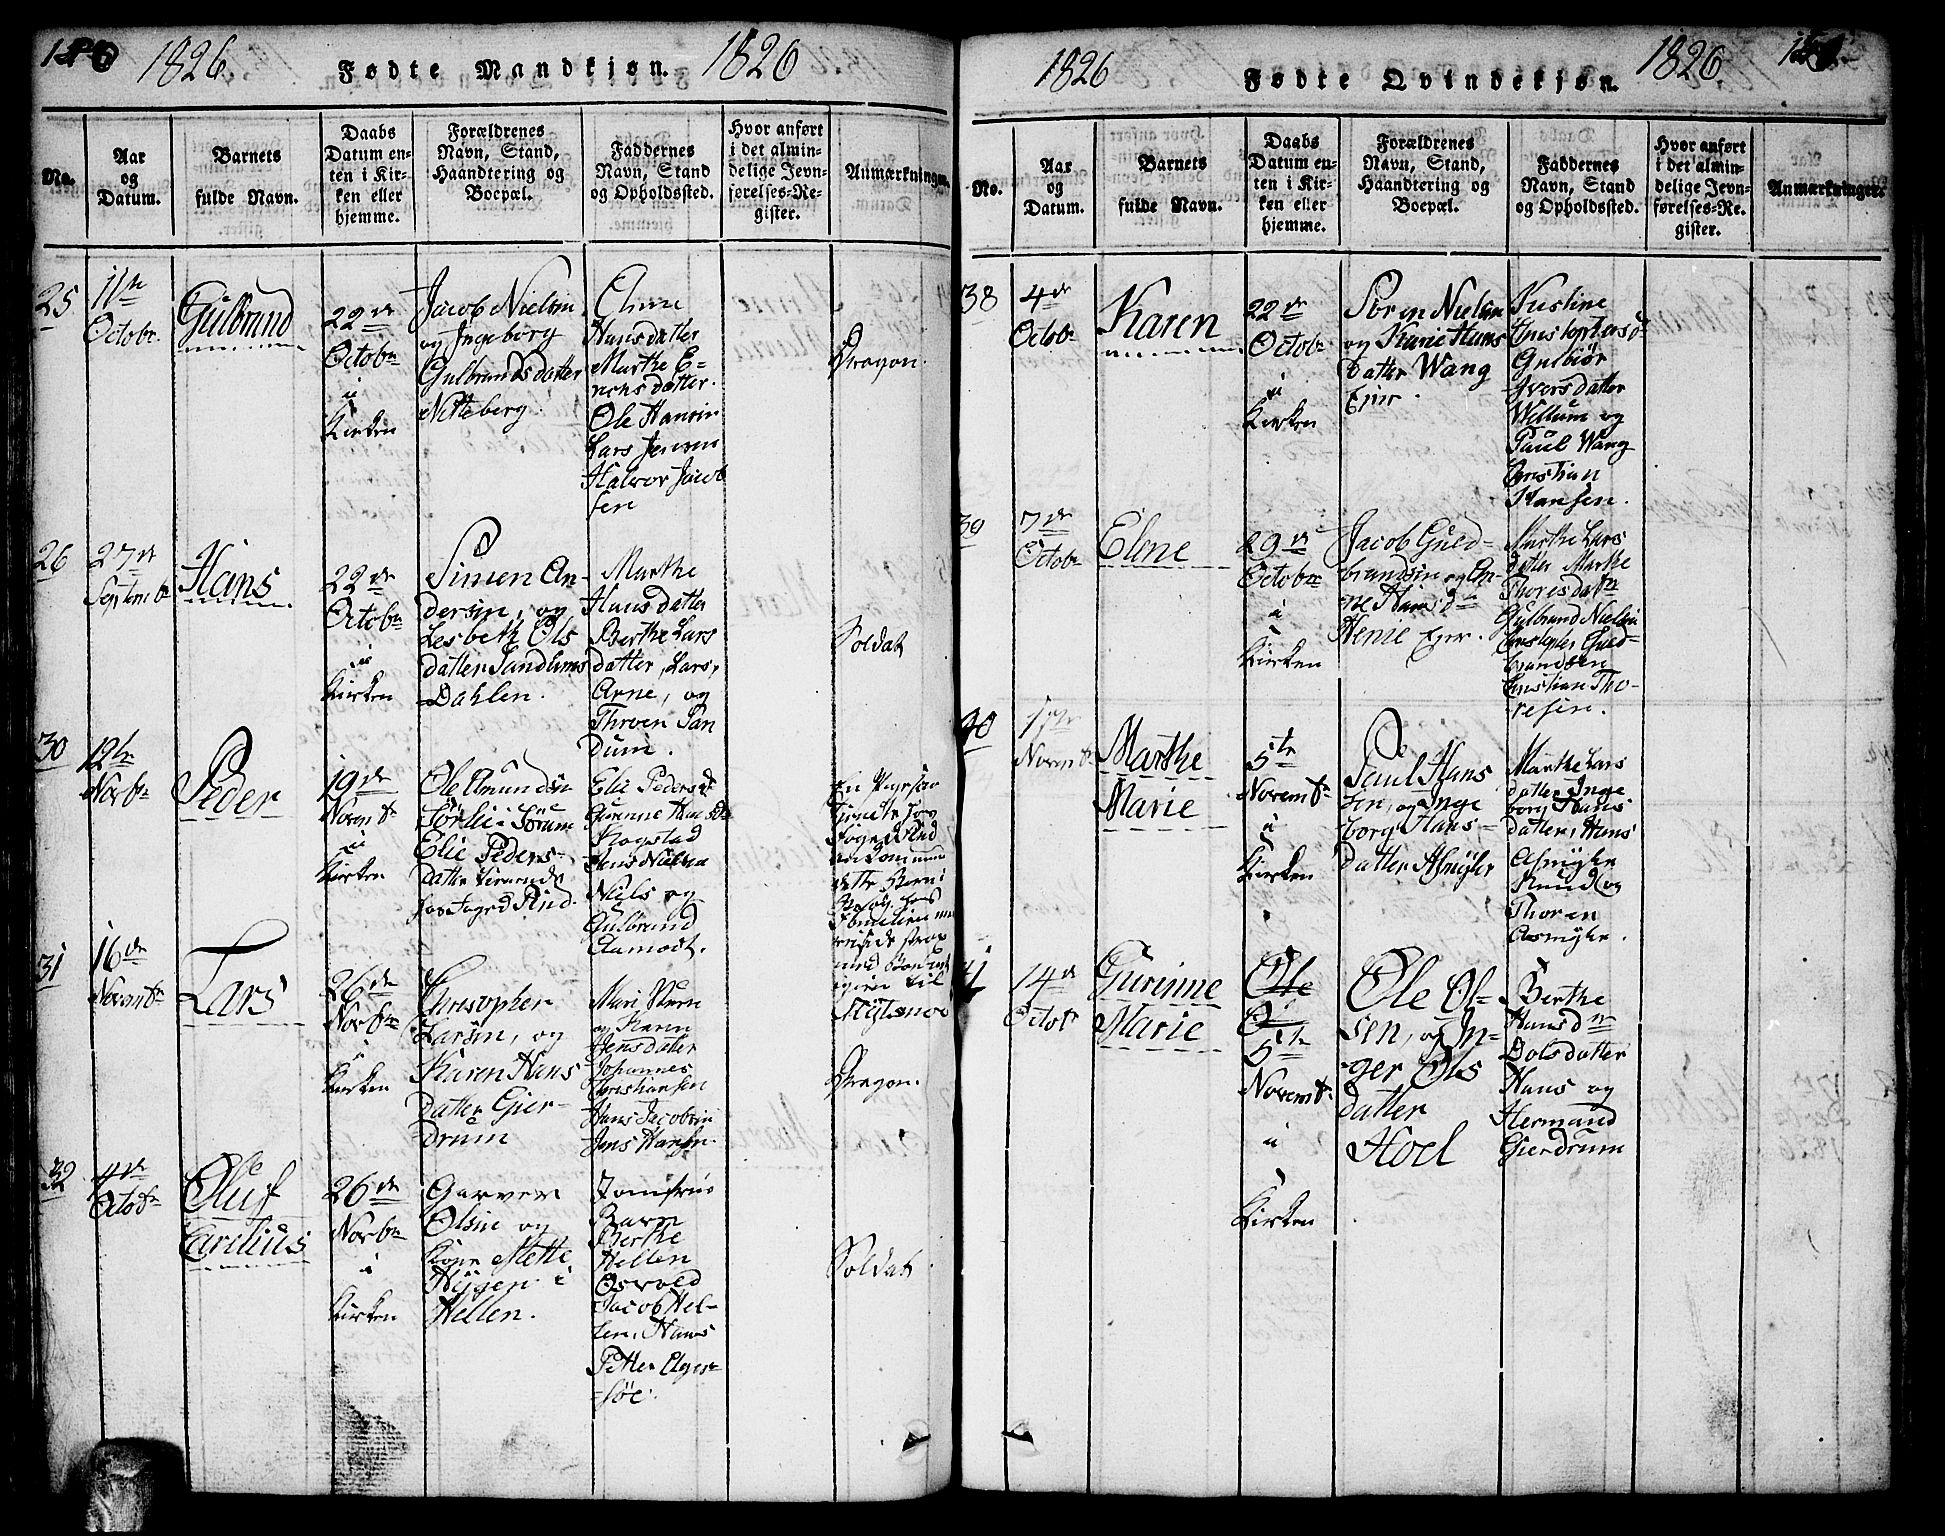 1826
Fødte Mandkjøn.
1826
No.
Aar
og
Datum.
Barnets
fulde Navn.
Daabs
Datum en-
ten i Kir-
ken eller
hjemme.
Forældrenes
Navn, Stand,
Haandtering og
Boepæl.
Faddernes
Navn, Stand
og Opholdssted.
Hvor anført
i det almin-
delige Jevn-
førelses-Re-
gister.
Anmærkninger.
25
11te
Octobr.
Gulbrand
22de
Octobr
i
Kirken
Jacob Nielsen
og Ingeborg
Gulbrandsdatter
Nitteberg.
Hansdatter
Marthe E-
Ole Hansen
Lars Jensen
Halvor Jacob
sen
Dragon.
26
27de
Septemb
Hans
22de
Octobr
i
Kirken
Simen An-
dersen, og
Lisbeth Ols
datter Sandums
Dahlen.
Marthe
Hansdatter
Berthe Lars
datter, Lars,
Arne, og
Throen San
dum.
Soldat
30
12te
Novbr
Peder
19de
Novembr
i
Kirken
Ole Amundsen
Sørli i Sørum
Elie Peders-
datter
hos Foged Rind.
Elie Pedersd
Gurenne Hansd
Rogstad
Jens Nielsen
Niels og
Gulbrand
Aamodt.
31
16de
Novembr
Lars
26de
Novbr
i
Kirken
Christopher
Larsen, og
Karen Hans
datter Gier-
drum
Mari
og Karen
Jensdatter
Johannes
Christiansen
Hans Jacobsen
Jens Hansen.
Dragon.
32
4de
Octobr
Oluf
Carelius
26de
Novbr
i
Kirken
Garver
Olsen og
Kone Mette
Hygen i
Hellen.
Jomfrue
Barn
Berthe
Hellen
Osvold
Jacob Hel-
sen, Hans
Petter
Soldat
1826
Fødte Qvindekjøn.
1826.
No.
Aar
og
Datum.
Barnets
fulde Navn.
Daabs
Datum en-
ten i Kir-
ken eller
hjemme.
Forældrenes
Navn, Stand,
Haandtering og
Boepæl.
Faddernes
Navn, Stand
og Opholdssted.
Hvor anført
i det almin-
delige Jevn-
førelses-Re-
gister.
Anmærkninger.
38
4de
Octobr
Karen
22de
Octobr
i
Kirken
Søren Nielsen
og Karie Hans
datter Wang
Eier.
Kirstine
Gulbiør
Iversdatter
Willum og
Paul Wang
Christian
Hansen.
39
7de
Octobr
Eline
29de
Octobr
i
Kirken
Jacob Guld-
brandsen og An-
ne Hansd
Henie Eier.
Marthe Lars
datter Marthe
Thoresdatr
Gulbrand Nielsen
Christopher Guld-
brandsen
Christian Tho-
resen.
40
1ste
Novembr
Marthe
Marie
5te
Novembr
i
Kirken
Paul Hans
sen, og Inge
borg Hans-
datter Asmyhr
Marthe Lars
datter Inge
borg Hans
datter, Hans
Asmyhr
Knud og
Thoren
Asmyhr.
41
14de
Octobr
Gurinne
Marie
Ole
O
5te
Novembr
i
Kirken
Ole Ol-
sen, og In-
ger Ols
datter
Hoel
Berthe
Hansdr
Dolsdatter
Hans og
Hermand
Gierdrum